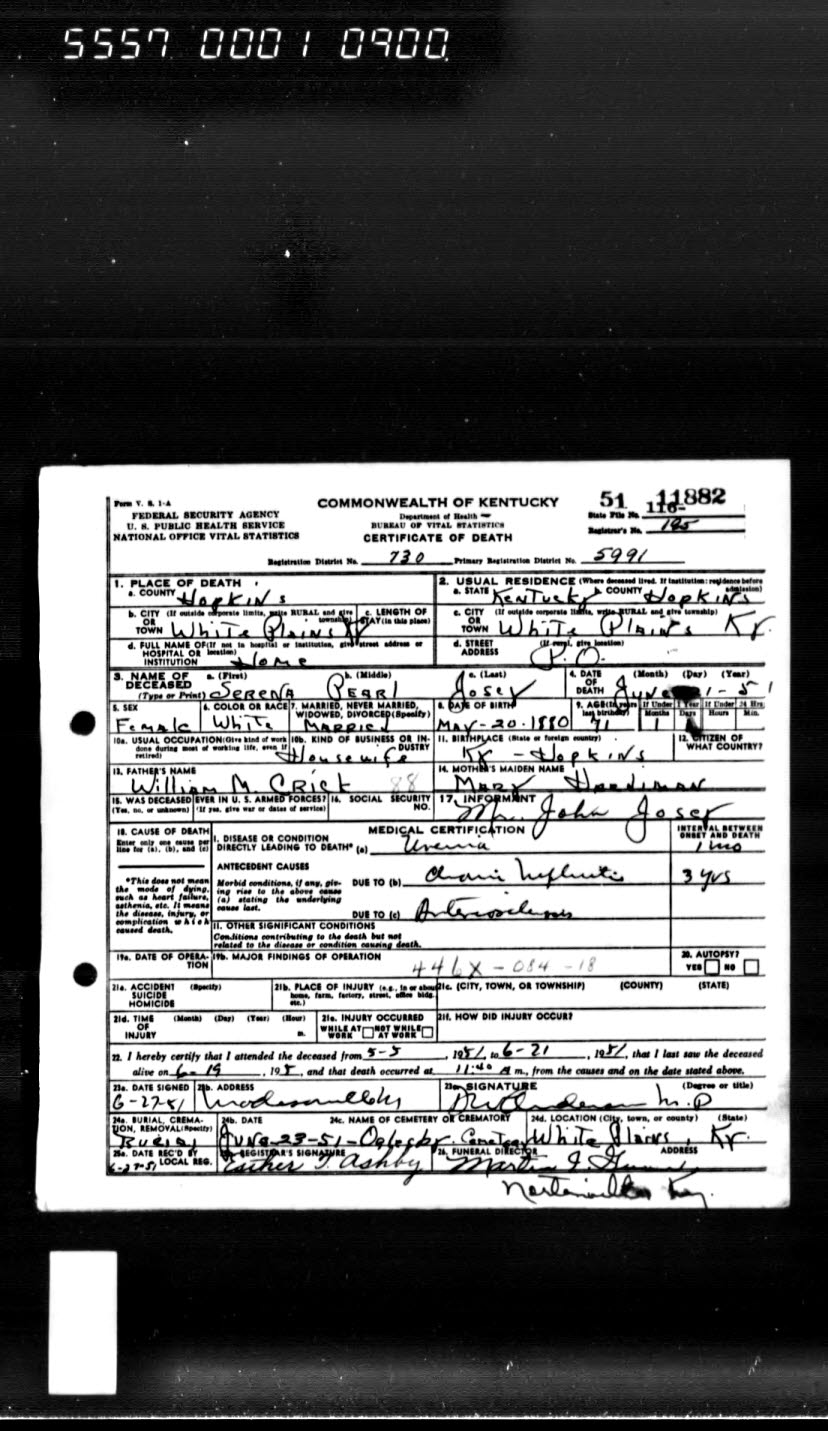 5557 0001 0900
Form V. S. 1-A
COMMONWEALTH OF KENTUCKY
51 11882
FEDERAL SECURITY AGENCY
Department of Health
State File No. 116-
U. S. PUBLIC HEALTH SERVICE
BUREAU OF VITAL STATISTICS
Registrar's No. 195
NATIONAL OFFICE VITAL STATISTICS
CERTIFICATE OF DEATH
Registration District No. 730 Primary Registration District No. 5991
1. PLACE OF DEATH
a. COUNTY Hopkins
2. USUAL RESIDENCE (Where deceased lived. If institution: residence before admission)
a. STATE Kentucky b. COUNTY Hopkins
b. CITY (If outside corporate limits, write RURAL and give township) OR TOWN White Plains
c. LENGTH OF STAY (in this place)
c. CITY (If outside corporate limits, write RURAL and give township) OR TOWN White Plains Ky.
d. FULL NAME OF (If not in hospital or institution, give street address or location) HOSPITAL OR INSTITUTION Home
d. STREET ADDRESS (If rural, give location) P.O.
3. NAME OF DECEASED (Type or Print) a. (First) Serena b. (Middle) Pearl c. (Last) Josey
4. DATE OF DEATH (Month) (Day) (Year) June 1-51
5. SEX Female
6. COLOR OR RACE White
7. MARRIED, NEVER MARRIED, WIDOWED, DIVORCED (Specify) Married
8. DATE OF BIRTH May-20-1880
9. AGE (In years last birthday) 71 If Under 1 Year Months 1 Days 1 If Under 24 Hrs. Hours Min.
10a. USUAL OCCUPATION (Give kind of work done during most of working life, even if retired)
10b. KIND OF BUSINESS OR INDUSTRY Housewife
11. BIRTHPLACE (State or foreign country) Ky - Hopkins
12. CITIZEN OF WHAT COUNTRY?
13. FATHER'S NAME William M. Crick 88
14. MOTHER'S MAIDEN NAME Mary Hardiman
15. WAS DECEASED EVER IN U. S. ARMED FORCES? (Yes, no, or unknown) (If yes, give war or dates of service)
16. SOCIAL SECURITY NO.
17. INFORMANT Mr. John Josey
18. CAUSE OF DEATH
Enter only one cause per line for (a), (b), and (c)
MEDICAL CERTIFICATION
INTERVAL BETWEEN ONSET AND DEATH
I. DISEASE OR CONDITION DIRECTLY LEADING TO DEATH* (a) Uremia 1 mo
*This does not mean the mode of dying, such as heart failure, asthenia, etc. It means the disease, injury, or complication which caused death.
ANTECEDENT CAUSES
Morbid conditions, if any, giving rise to the above cause (a) stating the underlying cause last.
DUE TO (b) Chronic Nephritis 3 yrs
DUE TO (c) Arteriosclerosis
II. OTHER SIGNIFICANT CONDITIONS
Conditions contributing to the death but not related to the disease or condition causing death.
19a. DATE OF OPERATION
19b. MAJOR FINDINGS OF OPERATION
446X-084-18
20. AUTOPSY? YES NO
21a. ACCIDENT SUICIDE HOMICIDE (Specify)
21b. PLACE OF INJURY (e.g., in or about home, farm, factory, street, office bldg. etc.)
21c. (CITY, TOWN, OR TOWNSHIP) (COUNTY) (STATE)
21d. TIME OF INJURY (Month) (Day) (Year) (Hour) m.
21e. INJURY OCCURRED WHILE AT WORK NOT WHILE AT WORK
21f. HOW DID INJURY OCCUR?
22. I hereby certify that I attended the deceased from 5-5, 1951, to 6-21, 1951, that I last saw the deceased
alive on 6-19, 195, and that death occurred at 11:40 A m., from the causes and on the date stated above.
23a. DATE SIGNED 6-27-51
23b. ADDRESS Madisonville Ky
23c. SIGNATURE (Degree or title) M.D
24a. BURIAL, CREMATION, REMOVAL (Specify) Burial
24b. DATE June-23-51
24c. NAME OF CEMETERY OR CREMATORY Oglesby Cemetery
24d. LOCATION (City, town, or county) (State) White Plains, Ky.
25a. DATE REC'D BY LOCAL REG. 6-27-51
25b. REGISTRAR'S SIGNATURE Esther T. Ashby
26. FUNERAL DIRECTOR ADDRESS Martin
Nortonville Ky.